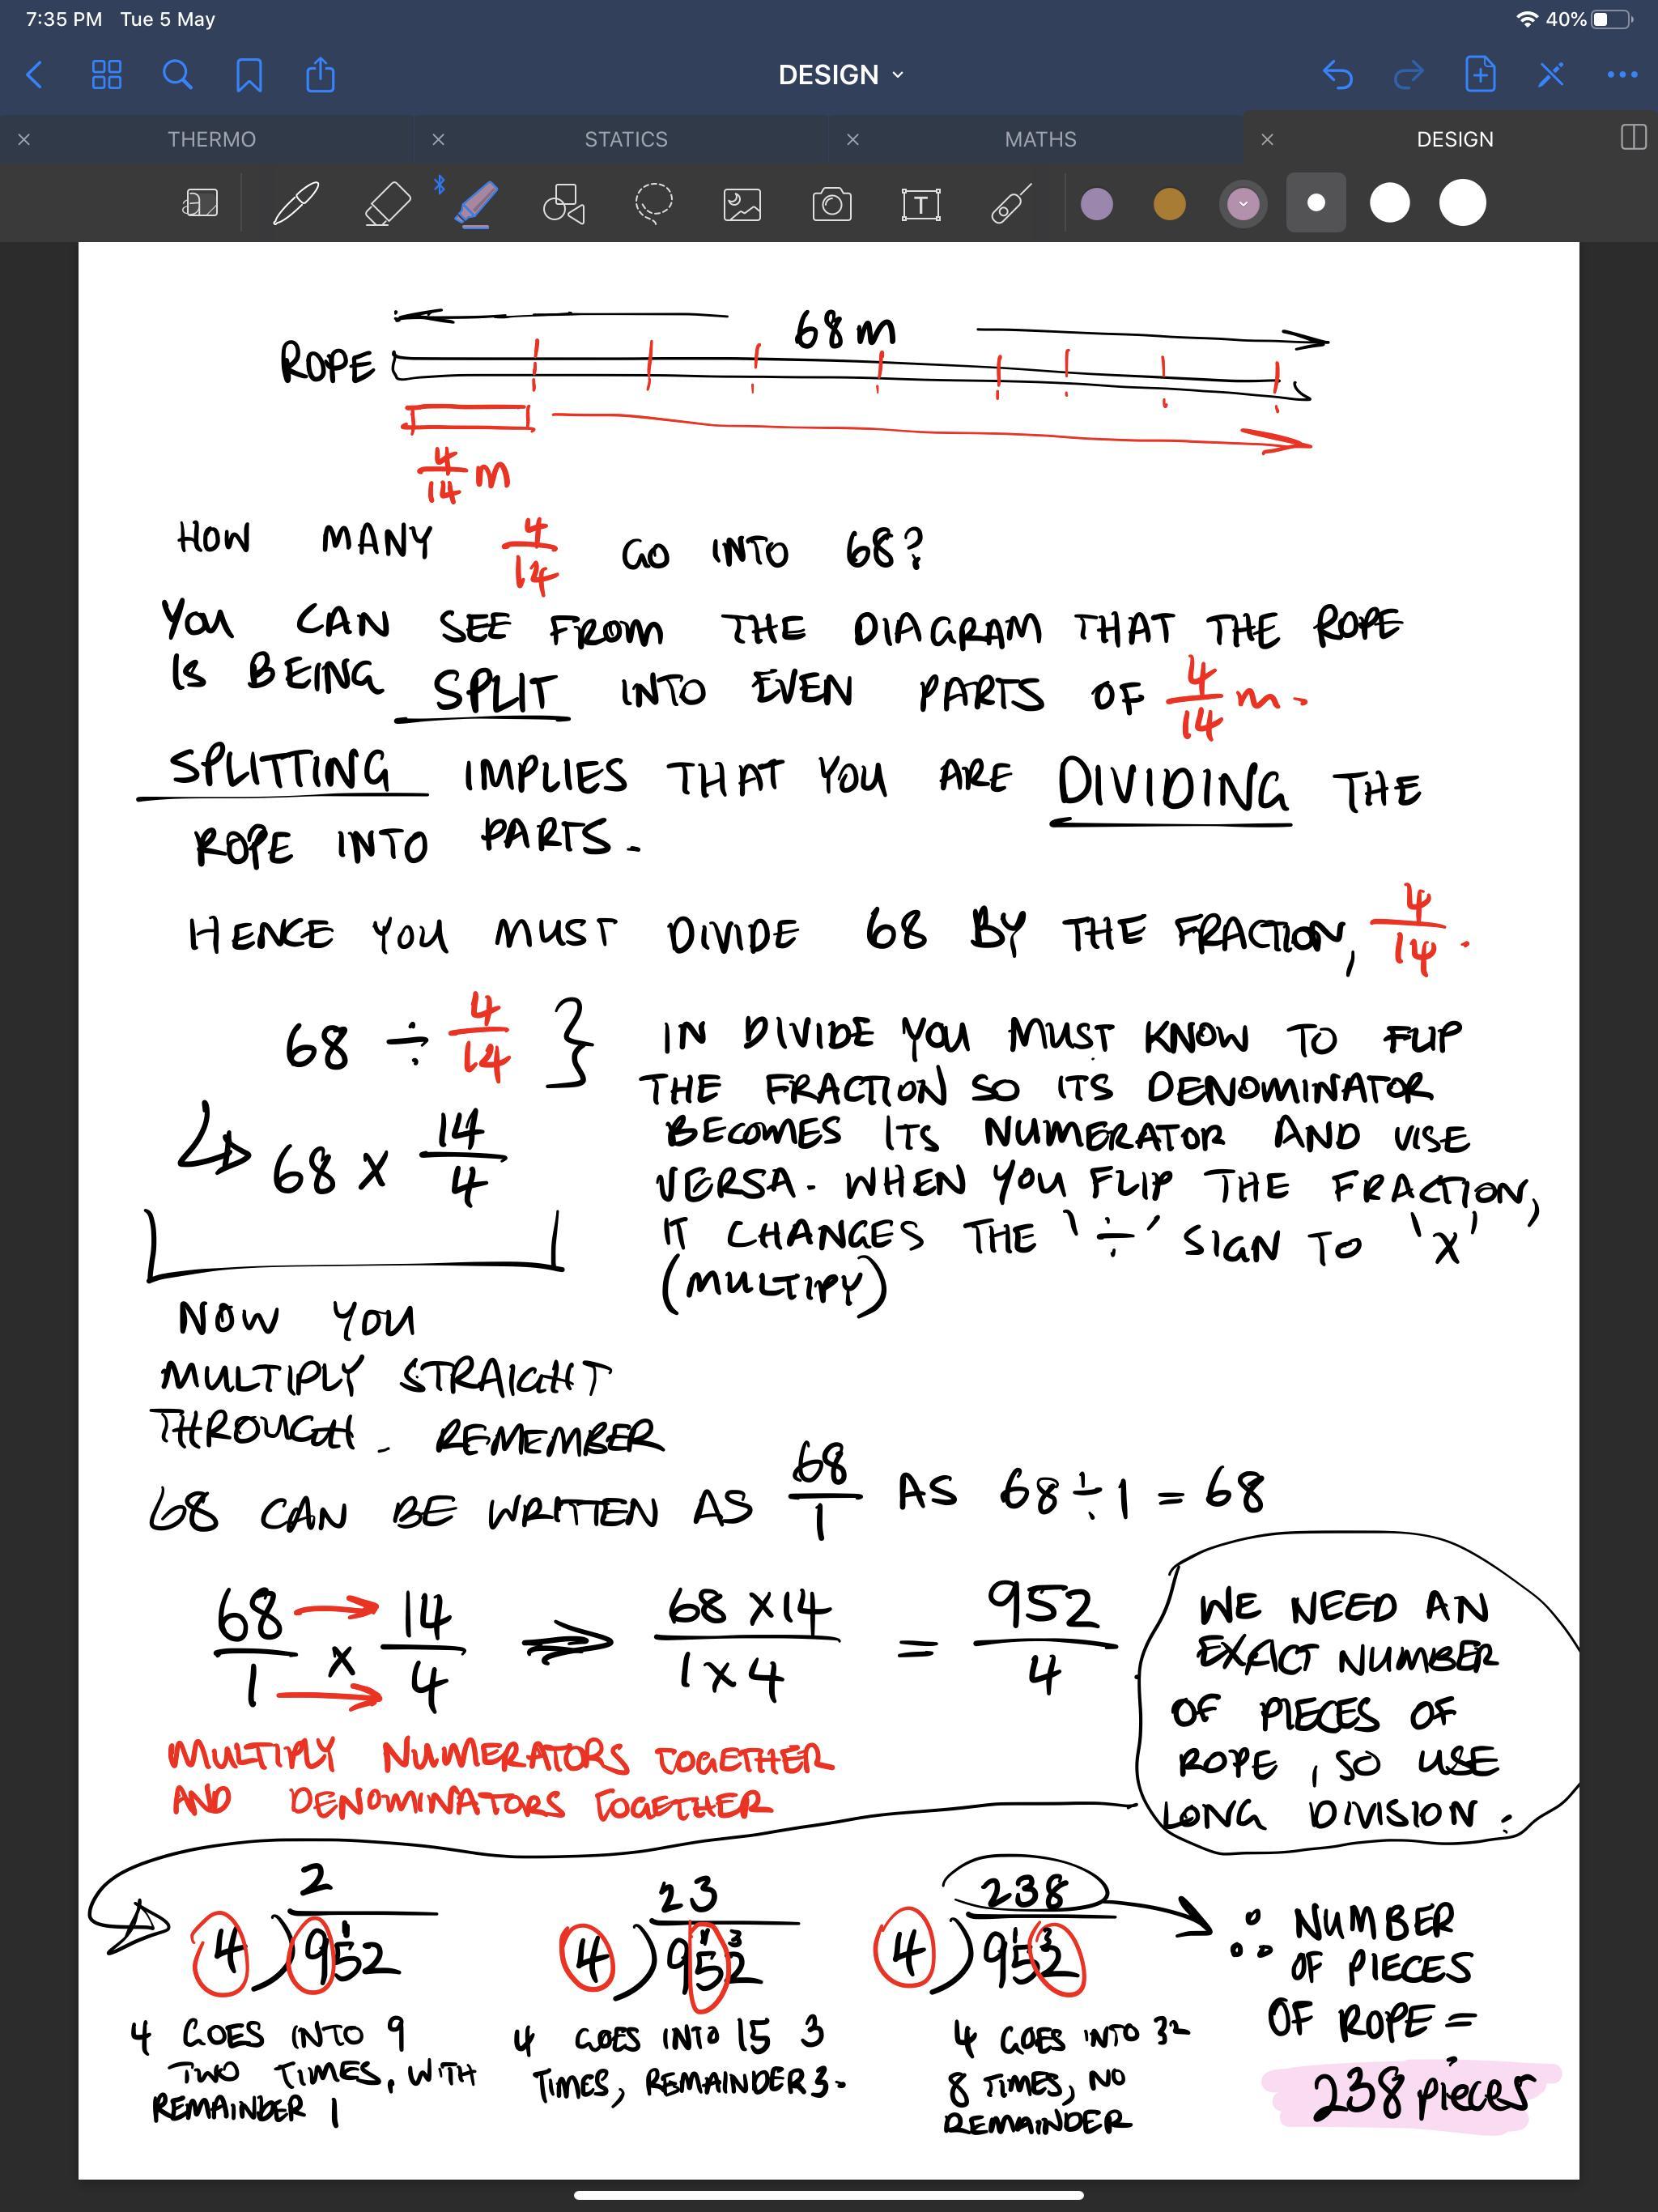 7:35 PM Tue 5 May
40%
DESIGN
THERMO
STATICS
MATHS
DESIGN
T
68 m
ROPE
4/14 m
HOW MANY 4/14 GO INTO 68?
YOU CAN SEE FROM THE DIAGRAM THAT THE ROPE
IS BEING SPLIT INTO EVEN PARTS OF 4/14 m.
SPLITTING IMPLIES THAT YOU ARE DIVIDING THE
ROPE INTO PARTS.
HENCE YOU MUST DIVIDE 68 BY THE FRACTION, 4/14.
68 ÷ 4/14 }
IN DIVIDE YOU MUST KNOW TO FLIP
THE FRACTION SO ITS DENOMINATOR
BECOMES ITS NUMERATOR AND VISE
VERSA. WHEN YOU FLIP THE FRACTION,
IT CHANGES THE '÷' SIGN TO 'X'
(MULTIPY)
68 x 14/4
NOW YOU
MULTIPLY STRAIGHT
THROUGH. REMEMBER
68 CAN BE WRITTEN AS 68/1 AS 68 ÷ 1 = 68
68/1 x 14/4 ⇒ 68 x 14 / 1 x 4 = 952/4
MULTIPLY NUMERATORS TOGETHER
AND DENOMINATORS TOGETHER
WE NEED AN
EXACT NUMBER
OF PIECES OF
ROPE, SO USE
LONG DIVISION:
2
4)9¹52
4 GOES INTO 9
TWO TIMES, WITH
REMAINDER 1
23
4)9¹5³2
4 GOES INTO 15 3
TIMES, REMAINDER 3.
238
4)9¹5³2
4 GOES INTO 32
8 TIMES, NO
REMAINDER
∴ NUMBER
OF PIECES
OF ROPE =
238 pieces